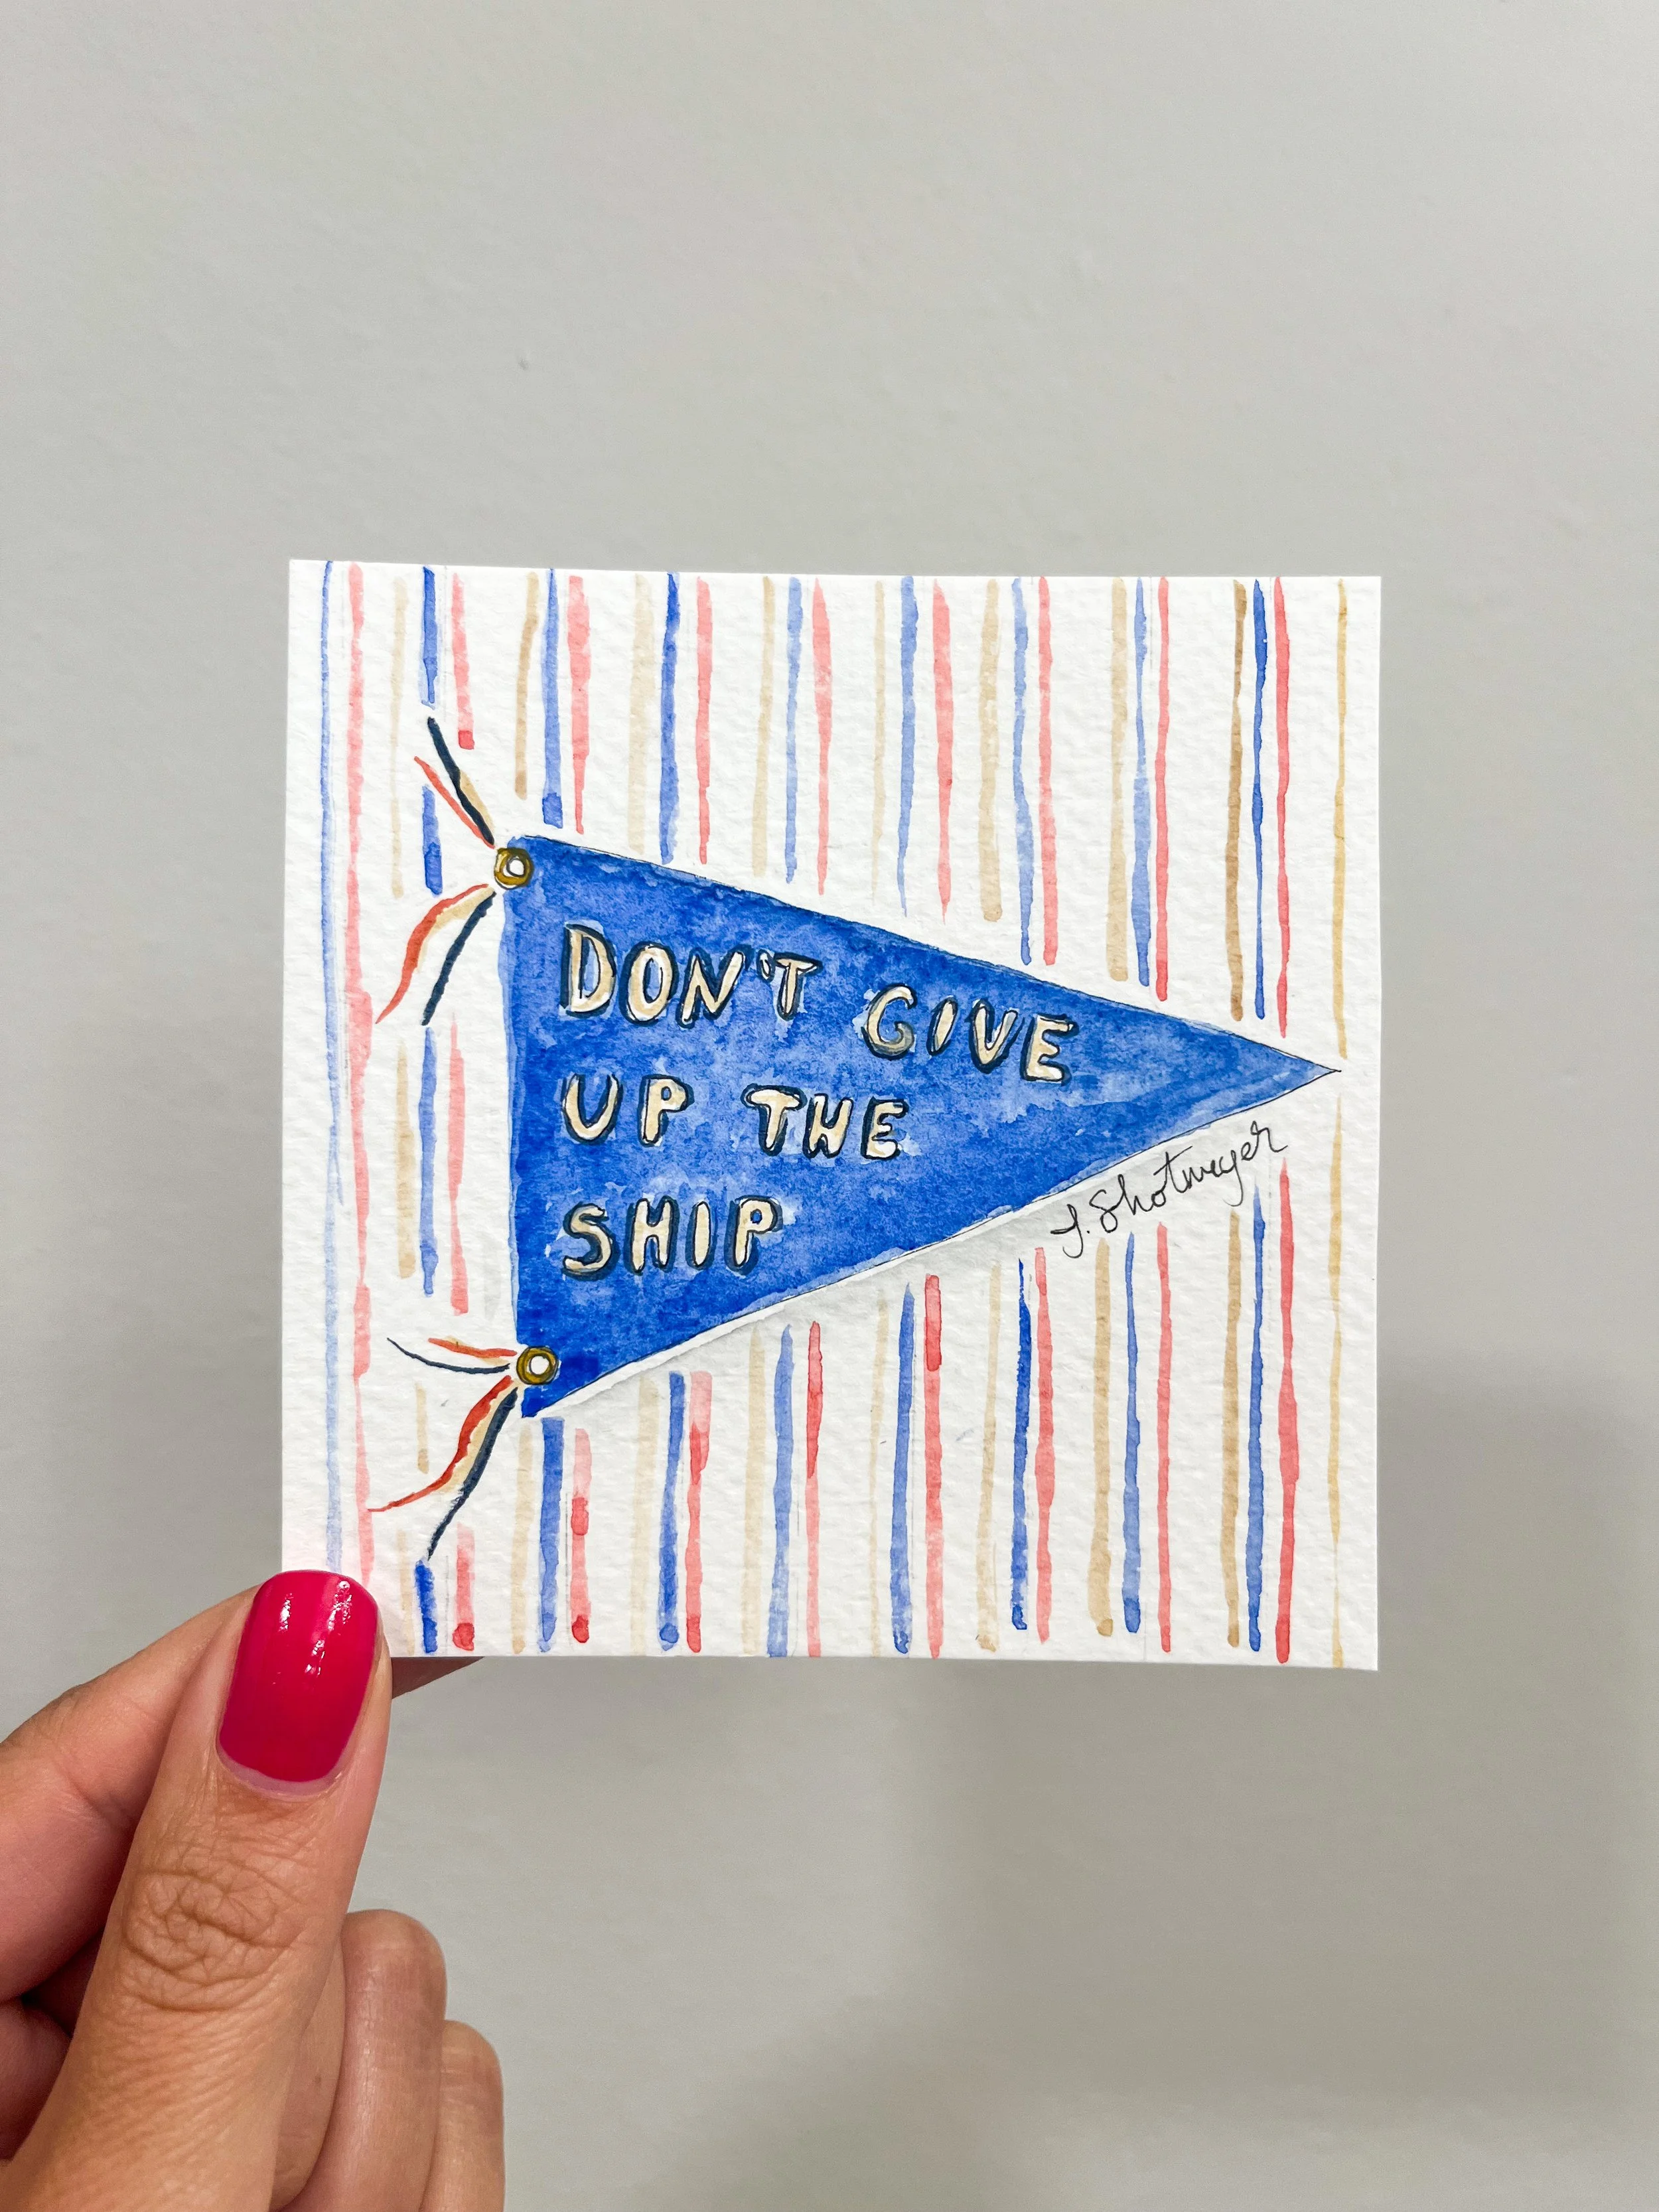 DON'T GIVE
UP THE
SHIP
J. Shotmeyer